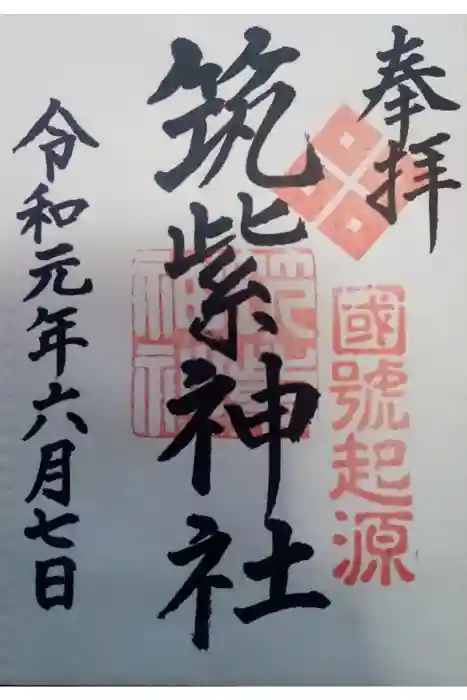 奉拝
國號起源
筑紫神社
筑紫神社
令和元年六月七日